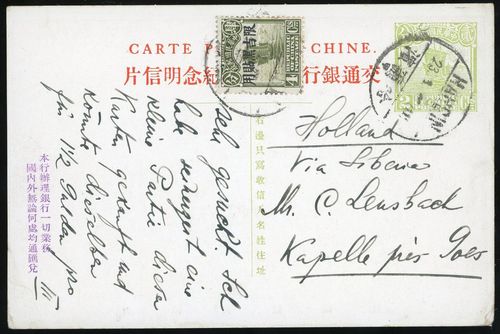 CARTE P CHINE.
交通銀行 紀念明信片
限吉黑貼用
HARBIN
23.1
右邊只寫收信人名姓住址
Holland
Via Siberia
Mr. C. Lensbach
Kapelle près Goes
sehr Ich
habe eine
kleine Partie dieser
Karten gekauft und
könnte dieselben
für 1½ Gulden pro
本行辦理銀行一切業務
國內外無論何處均通匯兌